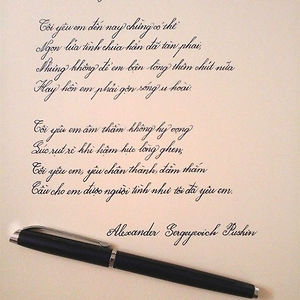 Tôi yêu em đến nay chừng có thể
Ngọn lửa tình chưa hẳn đã tàn phai,
Nhưng không để em bận lòng thêm chút nữa
Hay hồn em phải gợn sóng u hoài.
Tôi yêu em âm thầm không hy vọng
Lúc rụt rè khi hậm hực lòng ghen,
Tôi yêu em, yêu chân thành, đằm thắm
Cầu cho em được người tình như tôi đã yêu em.
Alexander Sergeyevich Puskin